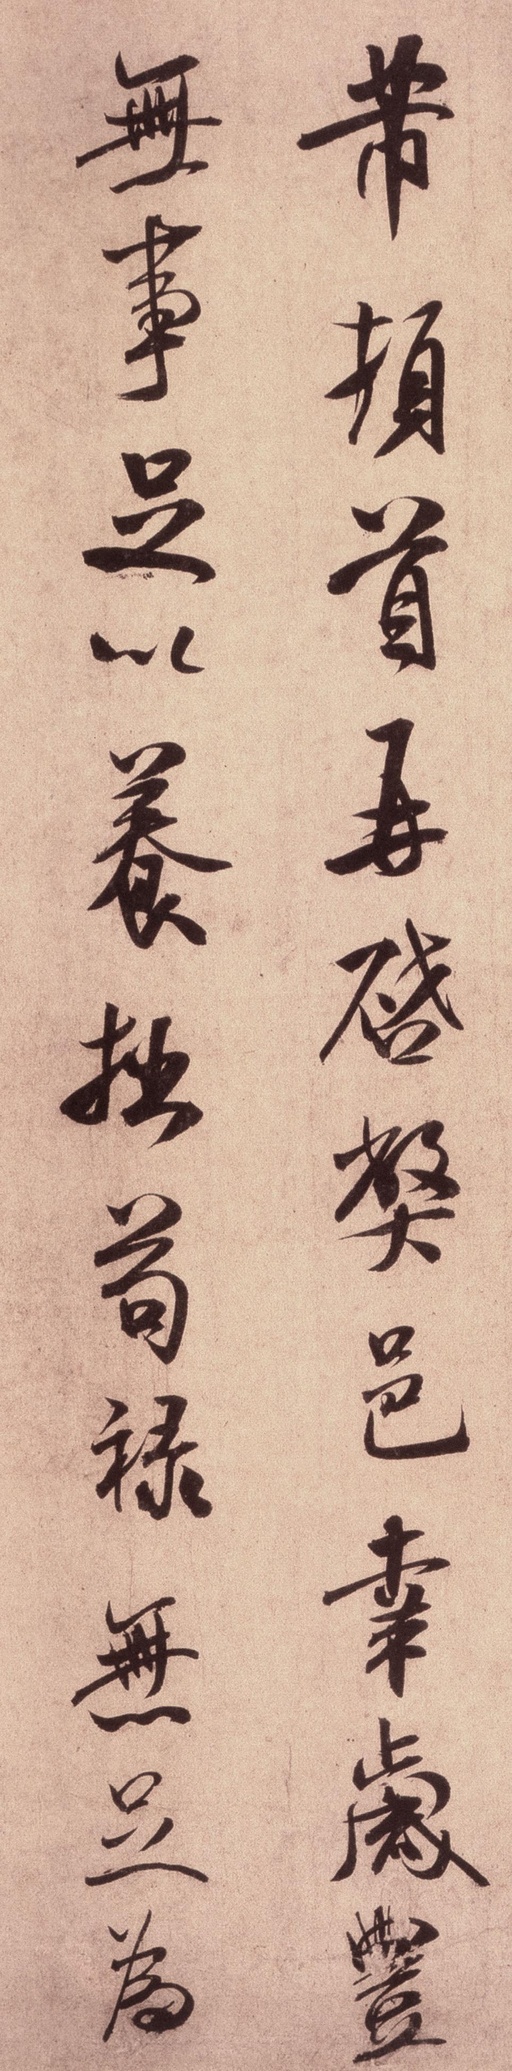 芾頓首再啓弊邑幸歲豐
無事足以養拙苟祿無足為